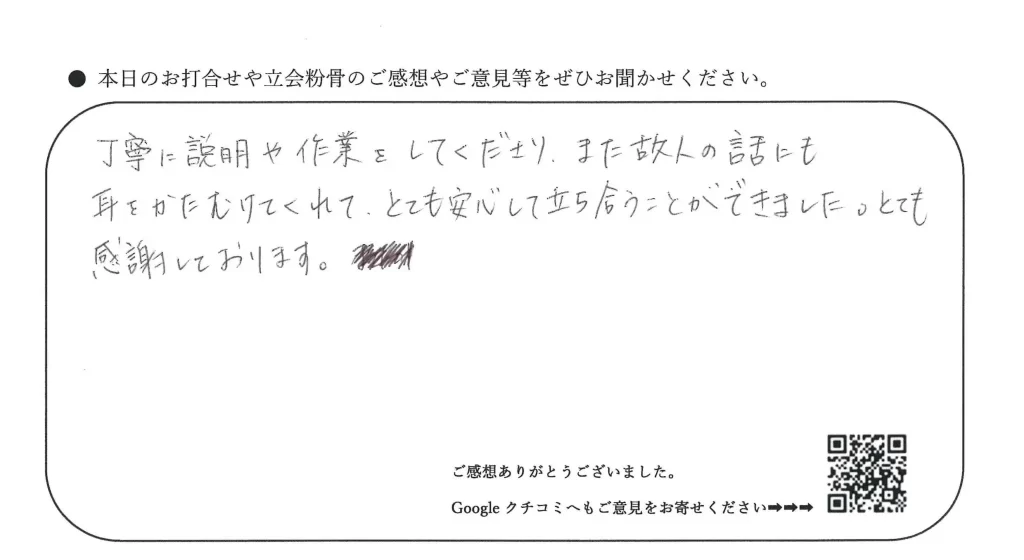 ● 本日のお打合せや立会粉骨のご感想やご意見等をぜひお聞かせください。
丁寧に説明や作業をしてくださり、また故人の話にも
耳をかたむけてくれて、とても安心して立ち合うことができました。とても
感謝しております。
ご感想ありがとうございました。
Google クチコミへもご意見をお寄せください➡➡➡